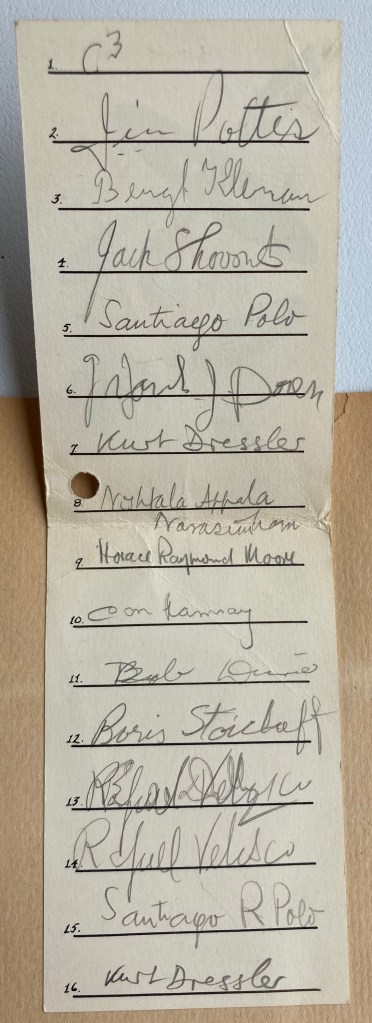 1. C³
2. Jim Potter
3. Bengt Kleman
4. Jack Shovonts
5. Santiago Polo
6.
7. Kurt Dressler
8. Nyhtala Appala
Narasimham
9. Horace Raymond Moore
10. Om Kannay
11. Bob
12. Boris Stoicheff
13.
14. Rafael Velasco
15. Santiago R Polo
16. Kurt Dressler